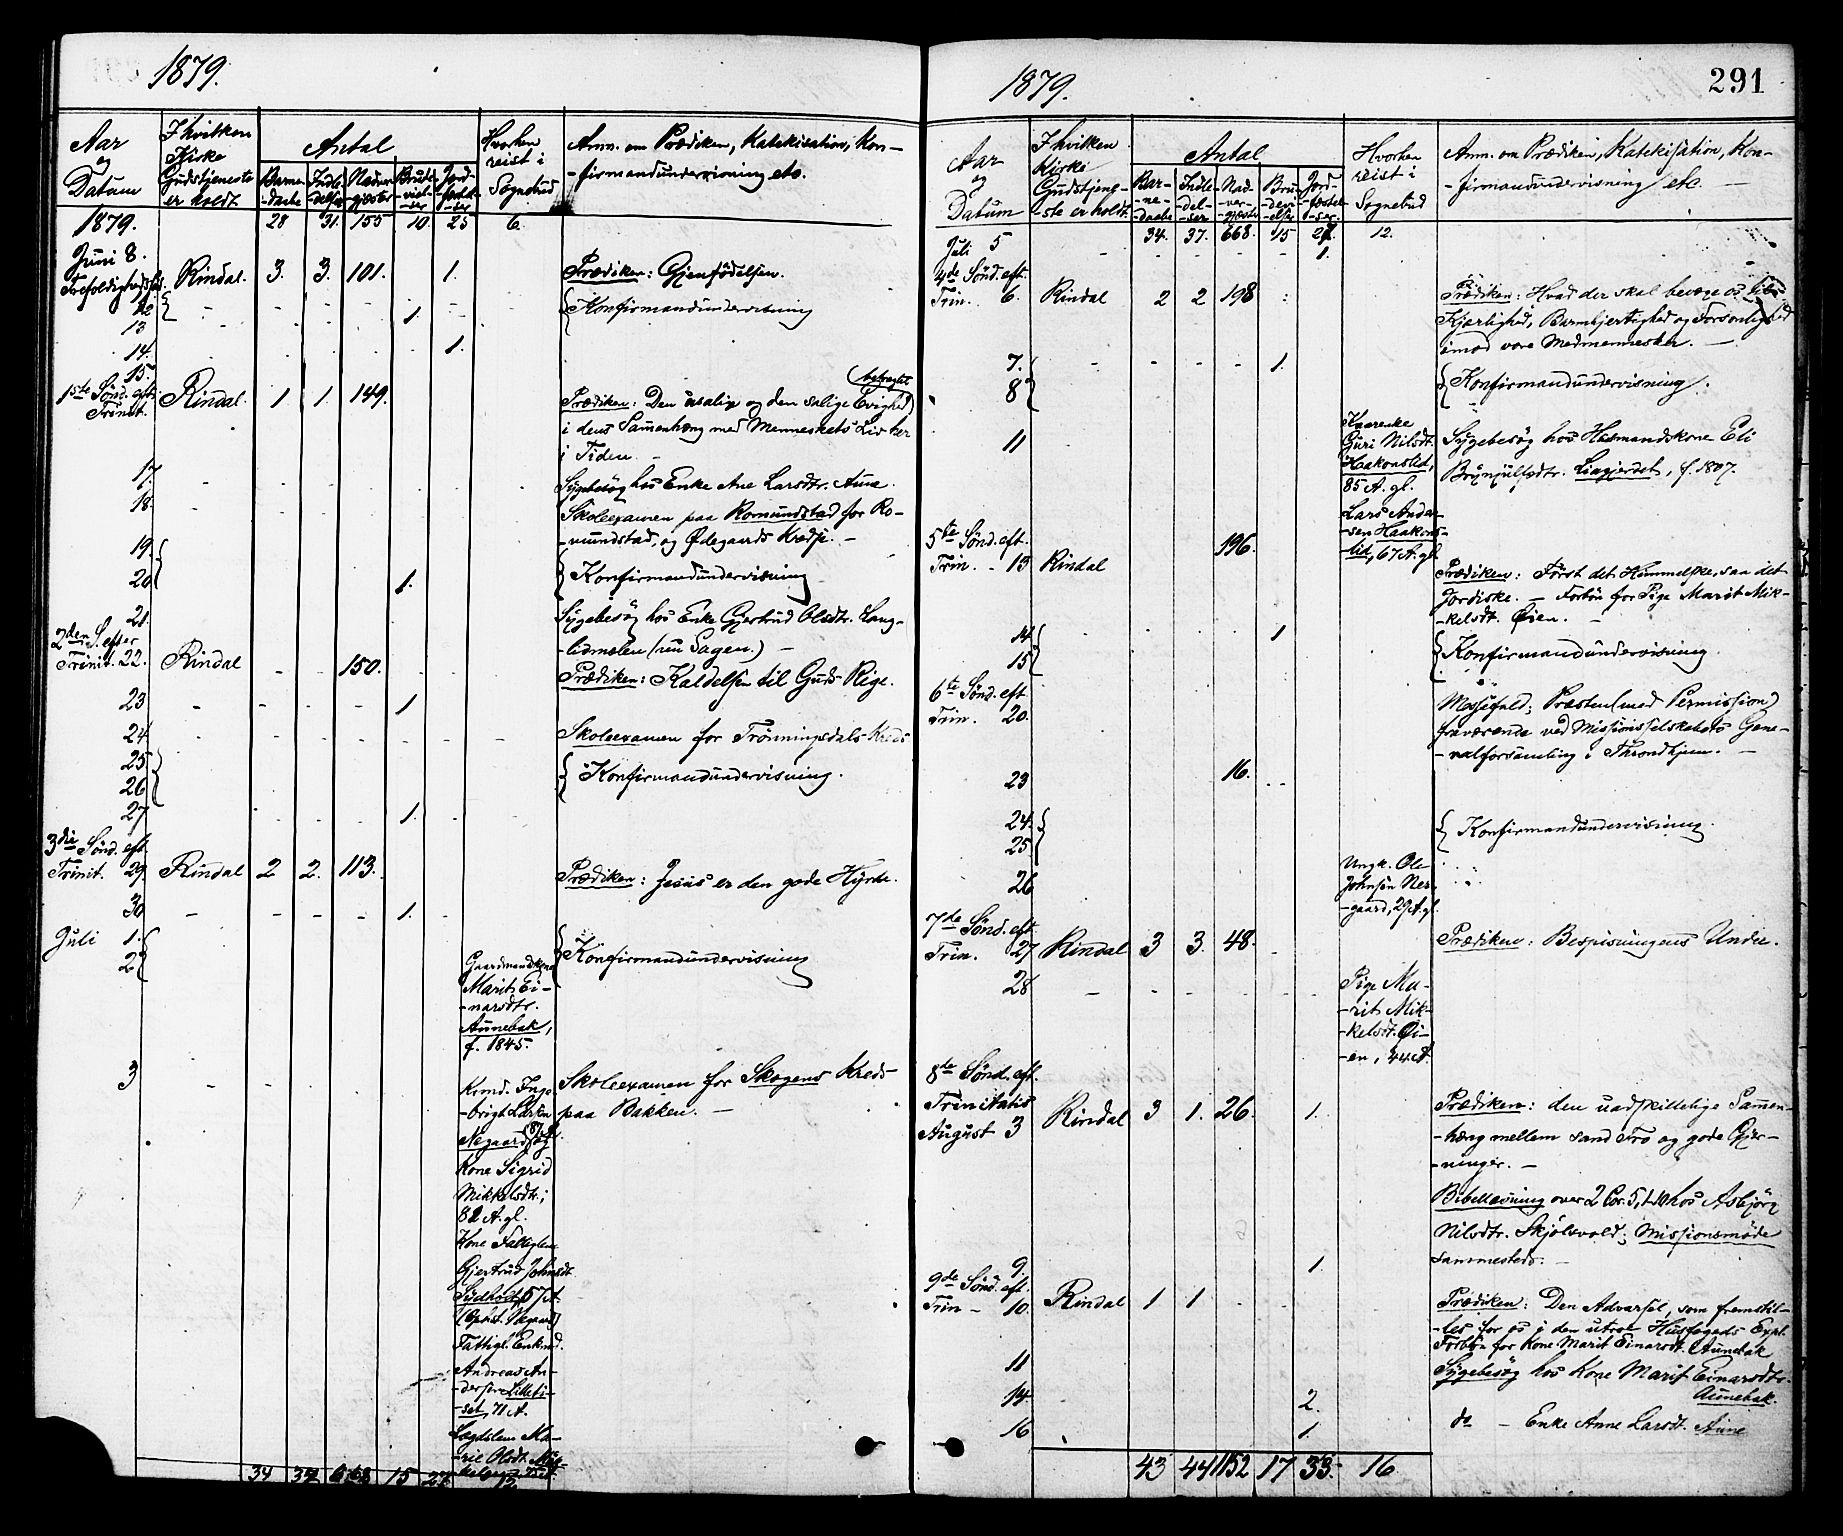 1879.
Aar og Datum
I hvilken Kirke Gudstjeneste er holdt.
Antal
Barne-daabe
Indle-delser
Nadver-gjæster
Brude-viel-ser
Jord-fæstel-ser
Hvorhen reist i Sognebud
Anm. om Prædiken, Katekisation, Kon-
-firmandundervisning etc.
1879. 28 31. 155 10. 25 6.
Juni 8.
Trefoldighedsfest Rindal. 3. 3. 101. 1. Prædiken: Gjenfödelsen.
12 { Konfirmandundervisning
13 1.
14. 1.
15.
1ste Sönd. eft. Trinit. Rindal. 1 1. 149. Prædiken: Den usalige og den salige Evighed betragtet
i dens Sammenhæng med Menneskets Liv her
i Tiden. -
17. Sygebesög hos Enke Ane Larsdtr. Aune.
18. Skoleexamen paa Romundstad for Ro-
-mundstad, og Ödegaards Kredse. -
19. { Konfirmandundervisning
20 1.
21. Sygebesög hos Enke Gjertrud Olsdtr. Lang-
-lidmolen (nu Sagen.) -
2den S. efter
Trinit. 22. Rindal 150. Prædiken: Kaldelsen til Guds Rige.
23 1
24. Skoleexamen for Trönningsdals Kreds
25 { Konfirmandundervisning.
26
27 1.
3die Sönd. eft.
Trinit. 29. Rindal 2 2. 113. Prædiken: Jesus er den gode Hyrde.
30 1.
Juli 1. { Konfirmandundervisning
2
Gaardmandskone
Marit Ei-
-narsdtr.
Aunebak,
f. 1845.
3 Skoleexamen for Skogens Kreds
paa Bakken. -
Inge-
-brigt Larsen
Negaard, og
Kone Sigrid
Mikkelsdtr.;
82 A. gl.
Kone
Gjertrud Johnsdt.
57 A.
Fattigl. Enkmd.
Andreas An-
-dersen Lilleti-
-set, 71 A.
Lægdslem Ma-
-rie Olsdt.
34 37 668 15 27 12.
1879.
291
Aar og Datum
I hvilken Kirke Gudstjene-ste er holdt.
Antal
Bar-ne-daabe
Indle-del-ser
Nad-ver-gjæster
Bru-devi-elser
Jord-fæstel-ser.
Hvorhen reist i Sognebud
Anm. om Prædiken, Katekisation, Kon-
-firmandundervisning etc. -
34. 37. 668. 15 27. 12.
Juli 5 1.
4de Sönd. eft.
Trin. 6. Rindal 2 2 198 Prædiken: Hvad der skal bevæge os til
Kjærlighed, Barmhjertighed og Forsonlighed
imod vore Medmennesker. -
7. 1.
8 { Konfirmandundervisning.
11
Kaarenke
Guri Nilsdt.
Haakonslid,
85 A. gl.
Sygebesög hos Husmandskone Eli
Brynjulfsdtr. Liagjerdet, f. 1807.
Lars Ander-
-sen Haakons-
-lid, 67 A. gl.
5te Sönd. eft.
Trin. - 13 Rindal 196. Prædiken: Först det Himmelske, saa det
Jordiske. - Forbön for Pige Marit Mik-
-kelsdt. Öien. -
14. 1
15. { Konfirmandundervisning
6te Sönd. eft.
Trin. 20. Messefald; Præsten (med Permission)
fraværende ved Missionsselskabets Gene-
-ralforsamling i Throndhjem. -
23 16.
24. { Konfirmandundervisning.
25.
26
Ungk. Ole
Johnsön Ner-
-gaard, 29 A. gl.
7de Sönd. eft.
Trin. 27 Rindal 3 3. 48. Prædiken: Bespisningens Under.
28
Pige Ma-
-rit Mik-
-kelsdt. Öi-
-en, 44 A.
8de Sönd. eft.
Trinitatis
August 3 Rindal 3 1. 26. 1. Prædiken: den uadskillelige Sammen-
-hæng mellem sand Tro og gode Gjer-
-ninger. -
Bibellæsning over 2 Cor. 5, 1-10 hos Asbjörg
Nilsdtr. Skjölsvold; Missionsmöde
sammesteds. -
9. 1.
9de Sönd. eft.
Trin - 10. Rindal 1 1 Prædiken: Den Advarsel, som fremstil-
-les for os i den utroe Husfogeds Expl.
Forbön for Kone Marit Einarsdt. Aunebak
11 Sygebesög hos Kone Marit Einarsdtr.
Aunebak.
14. 2.
16 1. do - Enke Anne Larsdt. Aune
43 44 1152 17 33. 16